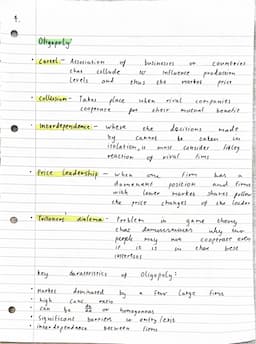 Oligopoly
• Cartel - Association of businesses or countries
that collude to influence production
levels and thus the market price
• Collusion - Takes place when rival companies
cooperate for their mutual benefit
• Interdependence - where the decisions made
by cannot be taken in
isolation, must consider likely
reaction of rival firms
• Price leadership - when one firm has a
dominant position and firms
with lower market shares follow
the price changes of the leader
• Prisoners dilema - Problem in game theory
that demonstrates why two
people may not cooperate even
if it is in their best
interests
Key Characteristics of Oligopoly:
• Market dominated by a few large firms
• high conc ratio
• can be or homogenous
• Significant barriers to entry/exit
• interdependence between firms